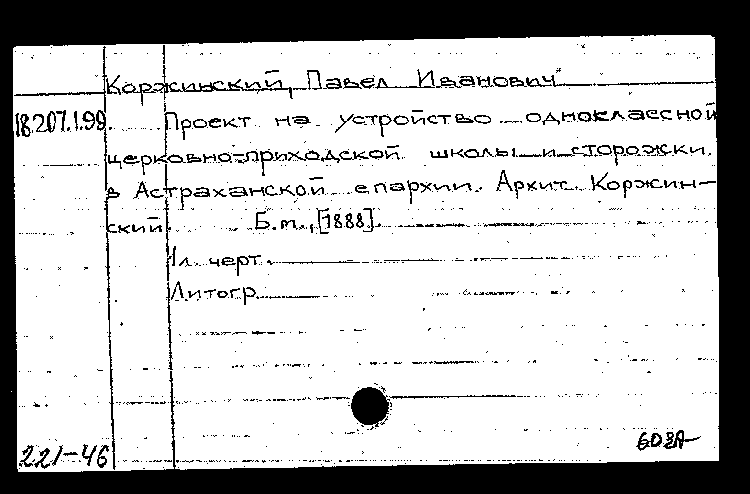 Коржинский, Павел Иванович
18.207.1.99. Проект на устройство одноклассной
церковно-приходской школы и сторожки
в Астраханской епархии. Архит. Коржин-
ский. Б.м., [1888].
1л. черт.
Литогр.
221-46